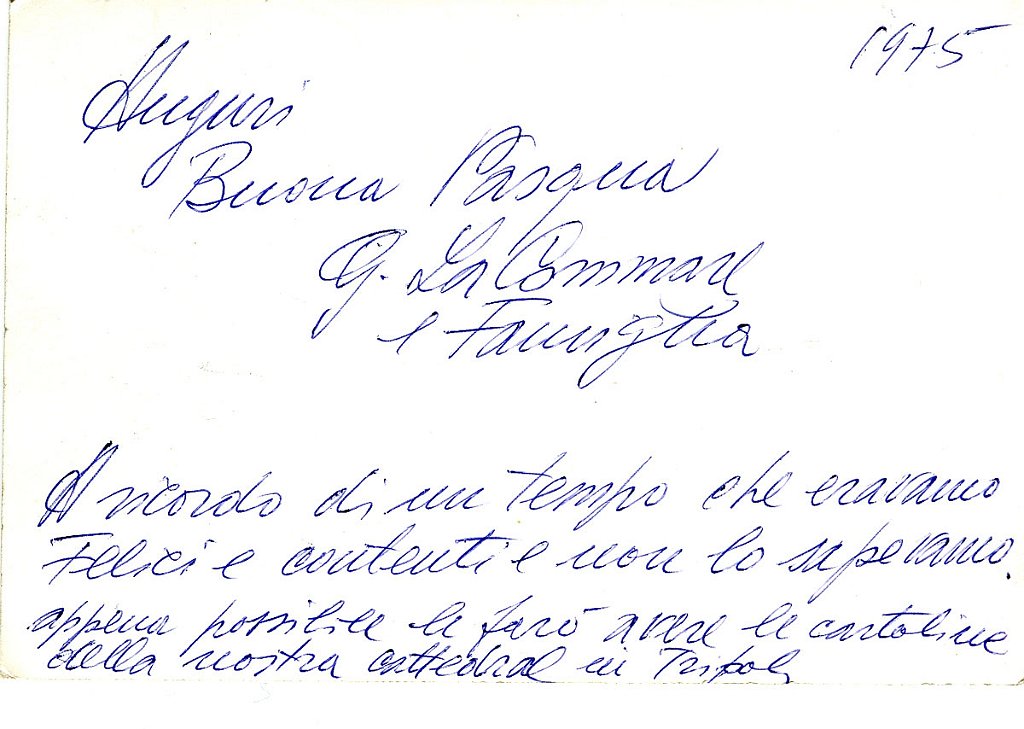 1975
Auguri
Buona Pasqua
G. La Commare
e Famiglia
A ricordo di un tempo che eravamo
Felici e contenti e non lo sapevamo.
appena possibile le farò avere le cartoline
della nostra cattedrale in Tripoli